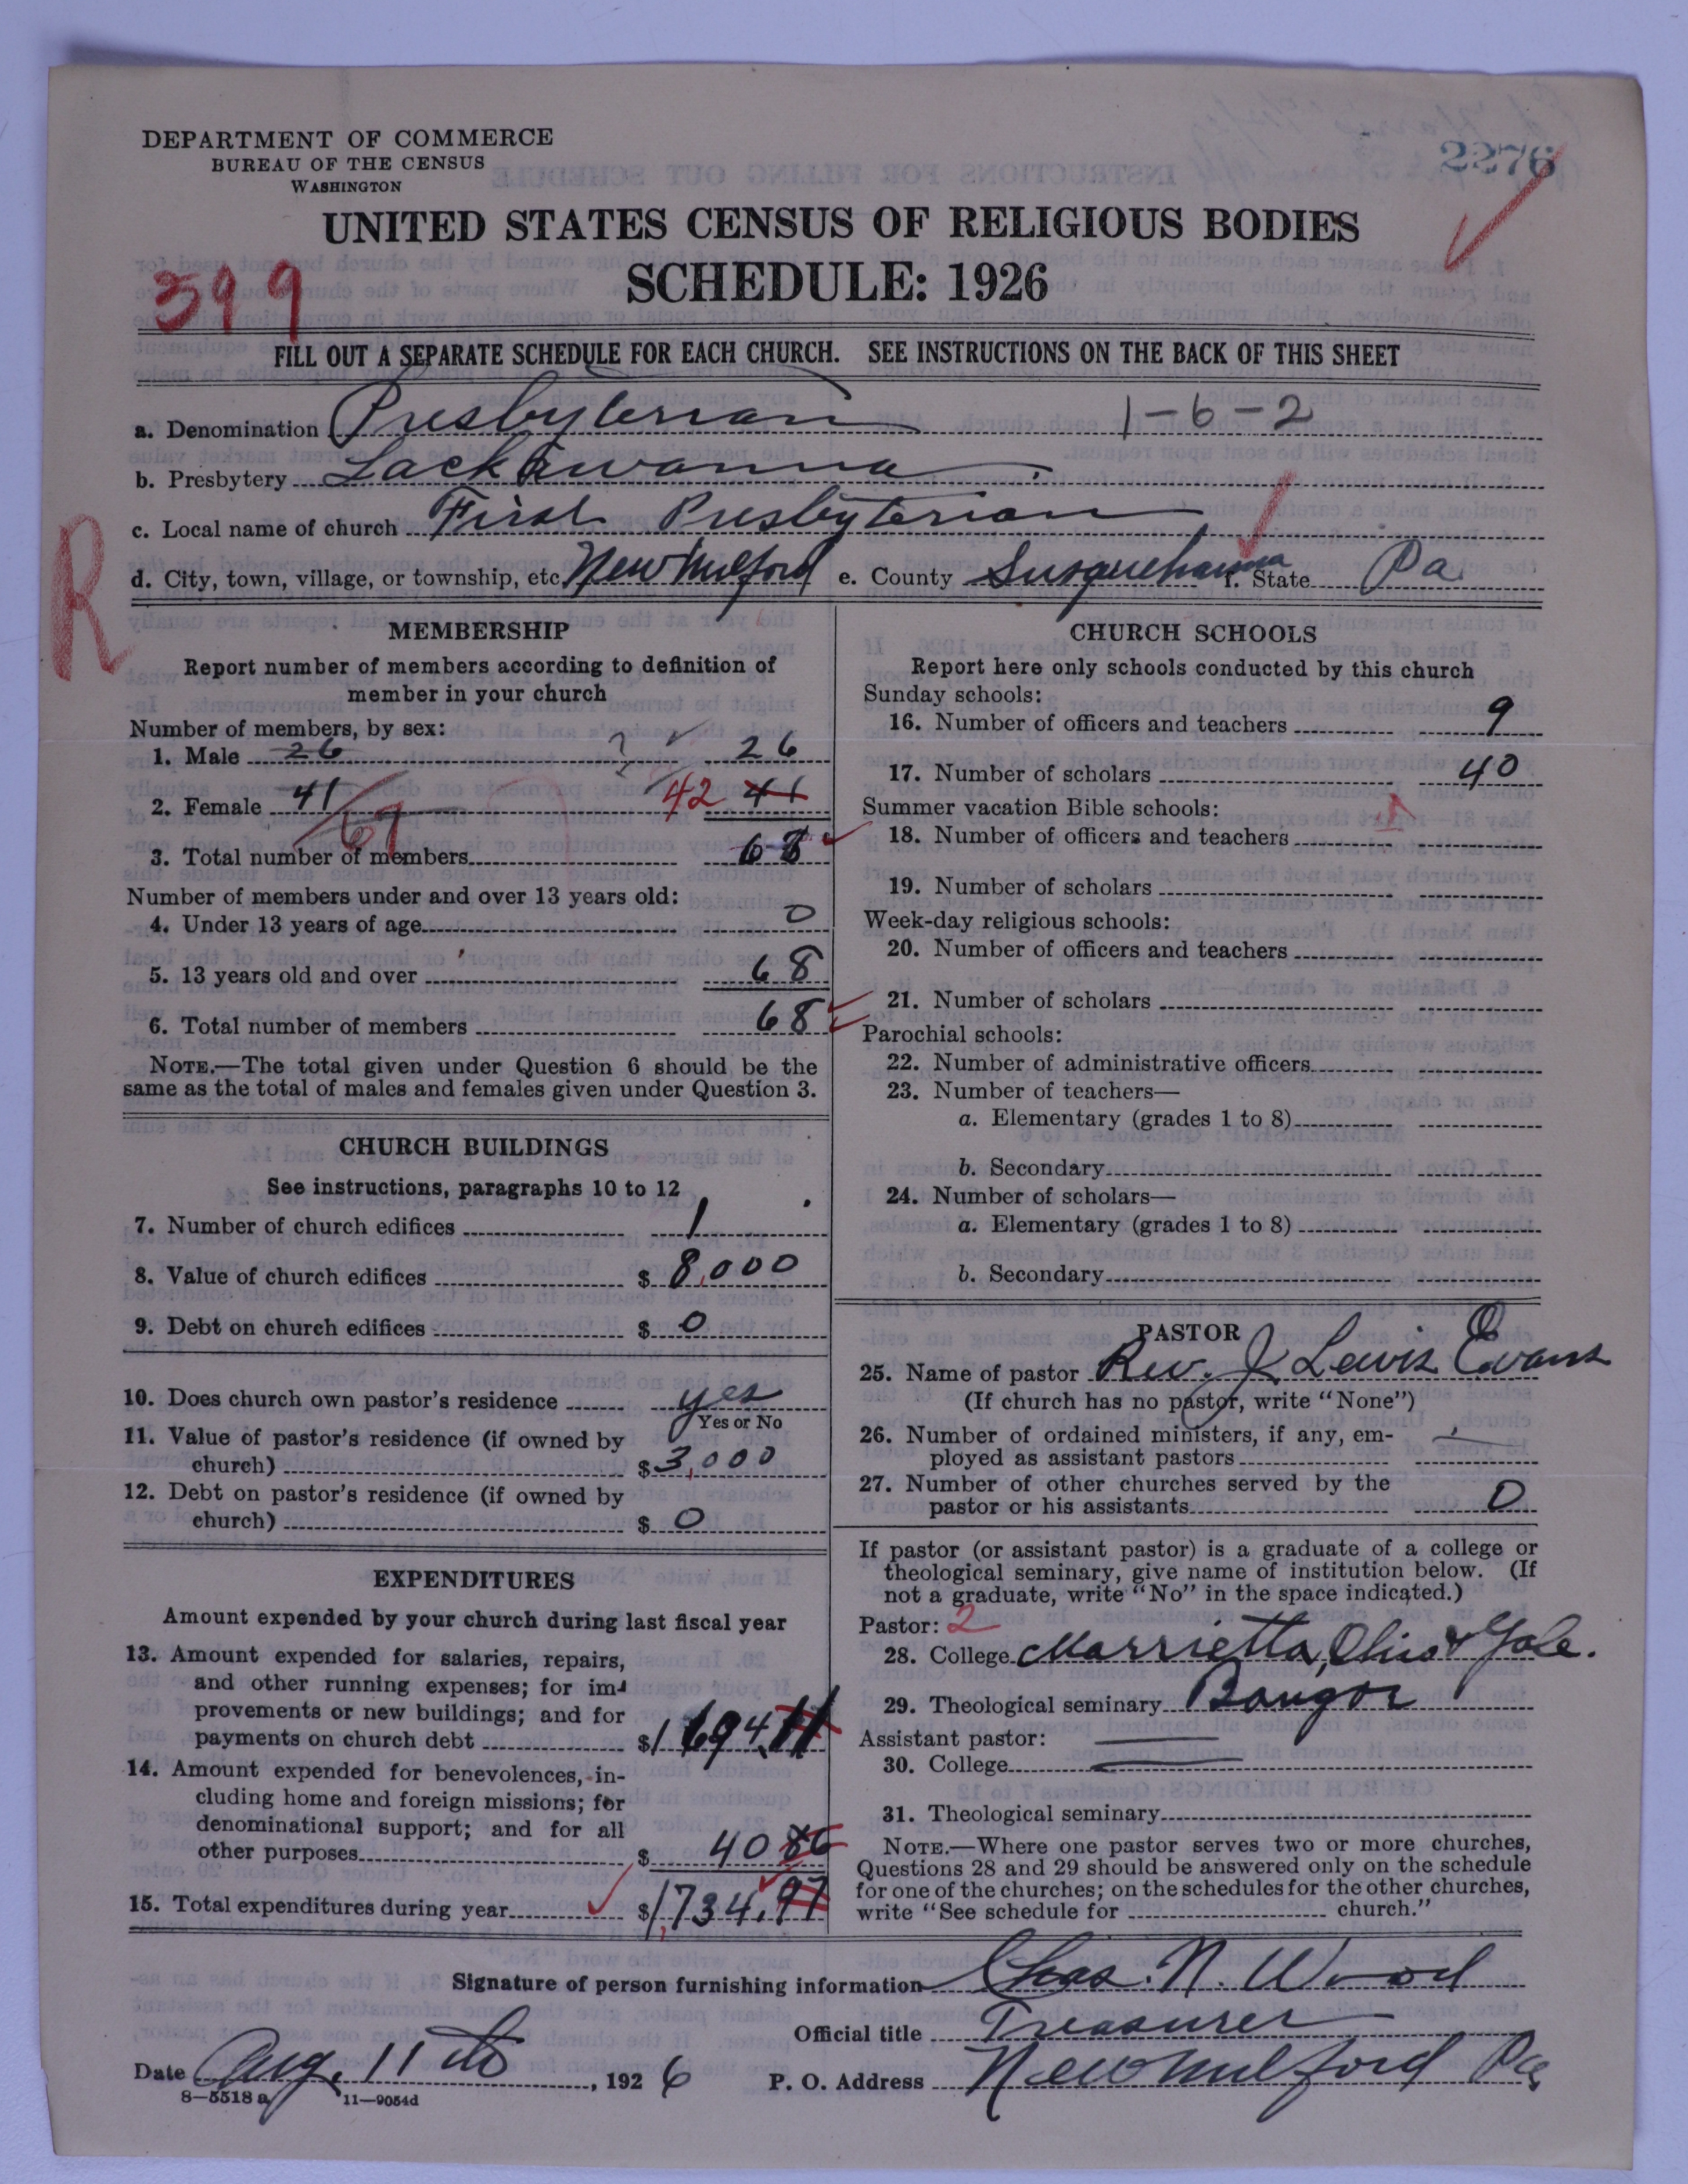 DEPARTMENT OF COMMERCE
BUREAU OF THE CENSUS
WASHINGTON
2276
UNITED STATES CENSUS OF RELIGIOUS BODIES
SCHEDULE: 1926
399
FILL OUT A SEPARATE SCHEDULE FOR EACH CHURCH. SEE INSTRUCTIONS ON THE BACK OF THIS SHEET
a. Denomination Presbyterian 1-6-2
b. Presbytery Lackawanna
c. Local name of church First Presbyterian
d. City, town, village, or township, etc. New Milford e. County Susquehanna f. State Pa
R
MEMBERSHIP
Report number of members according to definition of
member in your church
Number of members, by sex:
1. Male 26 ? 26
2. Female 41 67 42 41
3. Total number of members 68
Number of members under and over 13 years old:
4. Under 13 years of age 0
5. 13 years old and over 68
6. Total number of members 68
NOTE.—The total given under Question 6 should be the
same as the total of males and females given under Question 3.
CHURCH BUILDINGS
See instructions, paragraphs 10 to 12
7. Number of church edifices 1
8. Value of church edifices $ 8,000
9. Debt on church edifices $ 0
10. Does church own pastor's residence yes
Yes or No
11. Value of pastor's residence (if owned by
church) $ 3,000
12. Debt on pastor's residence (if owned by
church) $ 0
EXPENDITURES
Amount expended by your church during last fiscal year
13. Amount expended for salaries, repairs,
and other running expenses; for im-
provements or new buildings; and for
payments on church debt $ 1694.11
14. Amount expended for benevolences, in-
cluding home and foreign missions; for
denominational support; and for all
other purposes $ 40 86
15. Total expenditures during year $ 1,734.97
CHURCH SCHOOLS
Report here only schools conducted by this church
Sunday schools:
16. Number of officers and teachers 9
17. Number of scholars 40
Summer vacation Bible schools:
18. Number of officers and teachers
19. Number of scholars
Week-day religious schools:
20. Number of officers and teachers
21. Number of scholars
Parochial schools:
22. Number of administrative officers
23. Number of teachers—
a. Elementary (grades 1 to 8)
b. Secondary
24. Number of scholars—
a. Elementary (grades 1 to 8)
b. Secondary
PASTOR
25. Name of pastor Rev. J Lewis Evans
(If church has no pastor, write "None")
26. Number of ordained ministers, if any, em-
ployed as assistant pastors
27. Number of other churches served by the
pastor or his assistants 0
If pastor (or assistant pastor) is a graduate of a college or
theological seminary, give name of institution below. (If
not a graduate, write "No" in the space indicated.)
Pastor: 2
28. College Marrietta, Ohio & Yale.
29. Theological seminary Bangor
Assistant pastor:
30. College
31. Theological seminary
NOTE.—Where one pastor serves two or more churches,
Questions 28 and 29 should be answered only on the schedule
for one of the churches; on the schedules for the other churches,
write "See schedule for church."
Signature of person furnishing information Chas. N. Wood
Official title Treasurer
Date Aug. 11th, 1926 P. O. Address New Milford Pa
8—5518 a 11—9054d